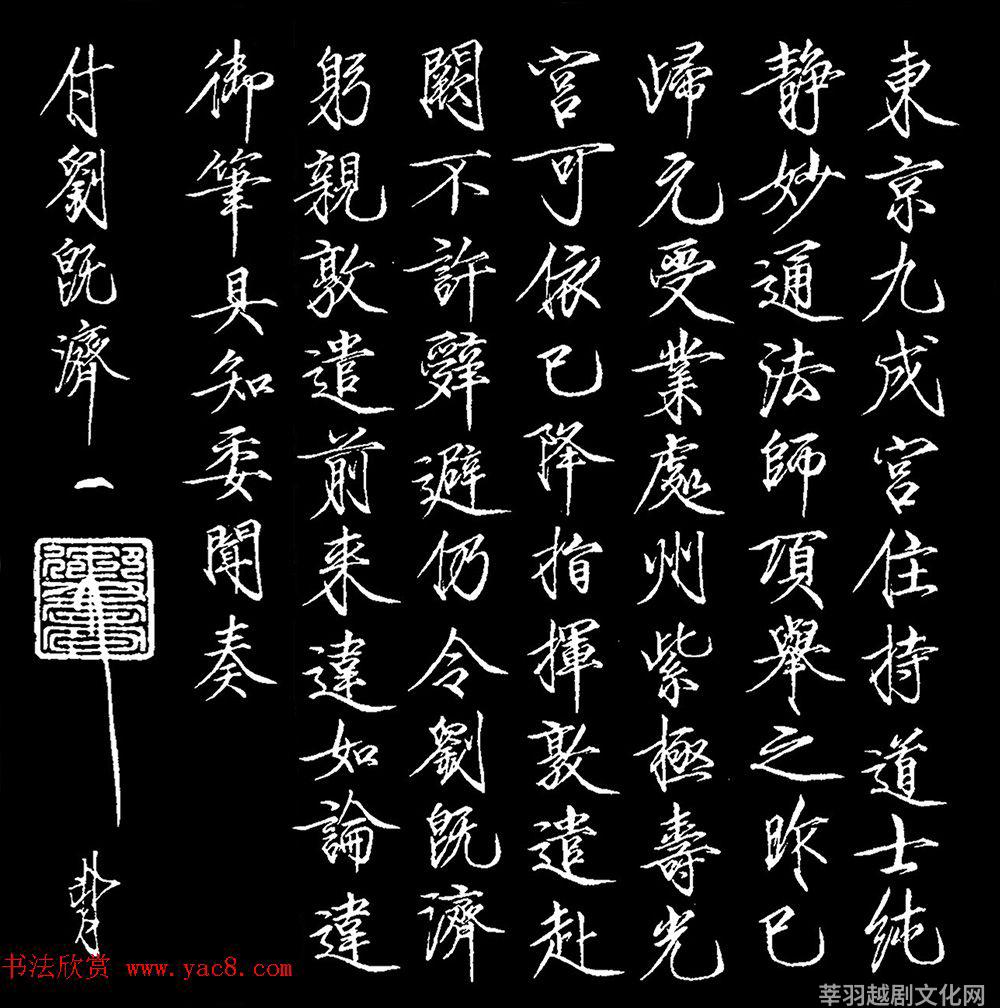 東京九成宮住持道士純
静妙通法師項舉之昨已
歸元受業處州紫極壽光
宮可依已降指揮敦遣赴
闕不許辭避仍令劉既濟
躬親敦遣前来違如論違
御筆具知委聞奏
付劉既濟
书法欣赏 www.yac8.com
莘羽越剧文化网